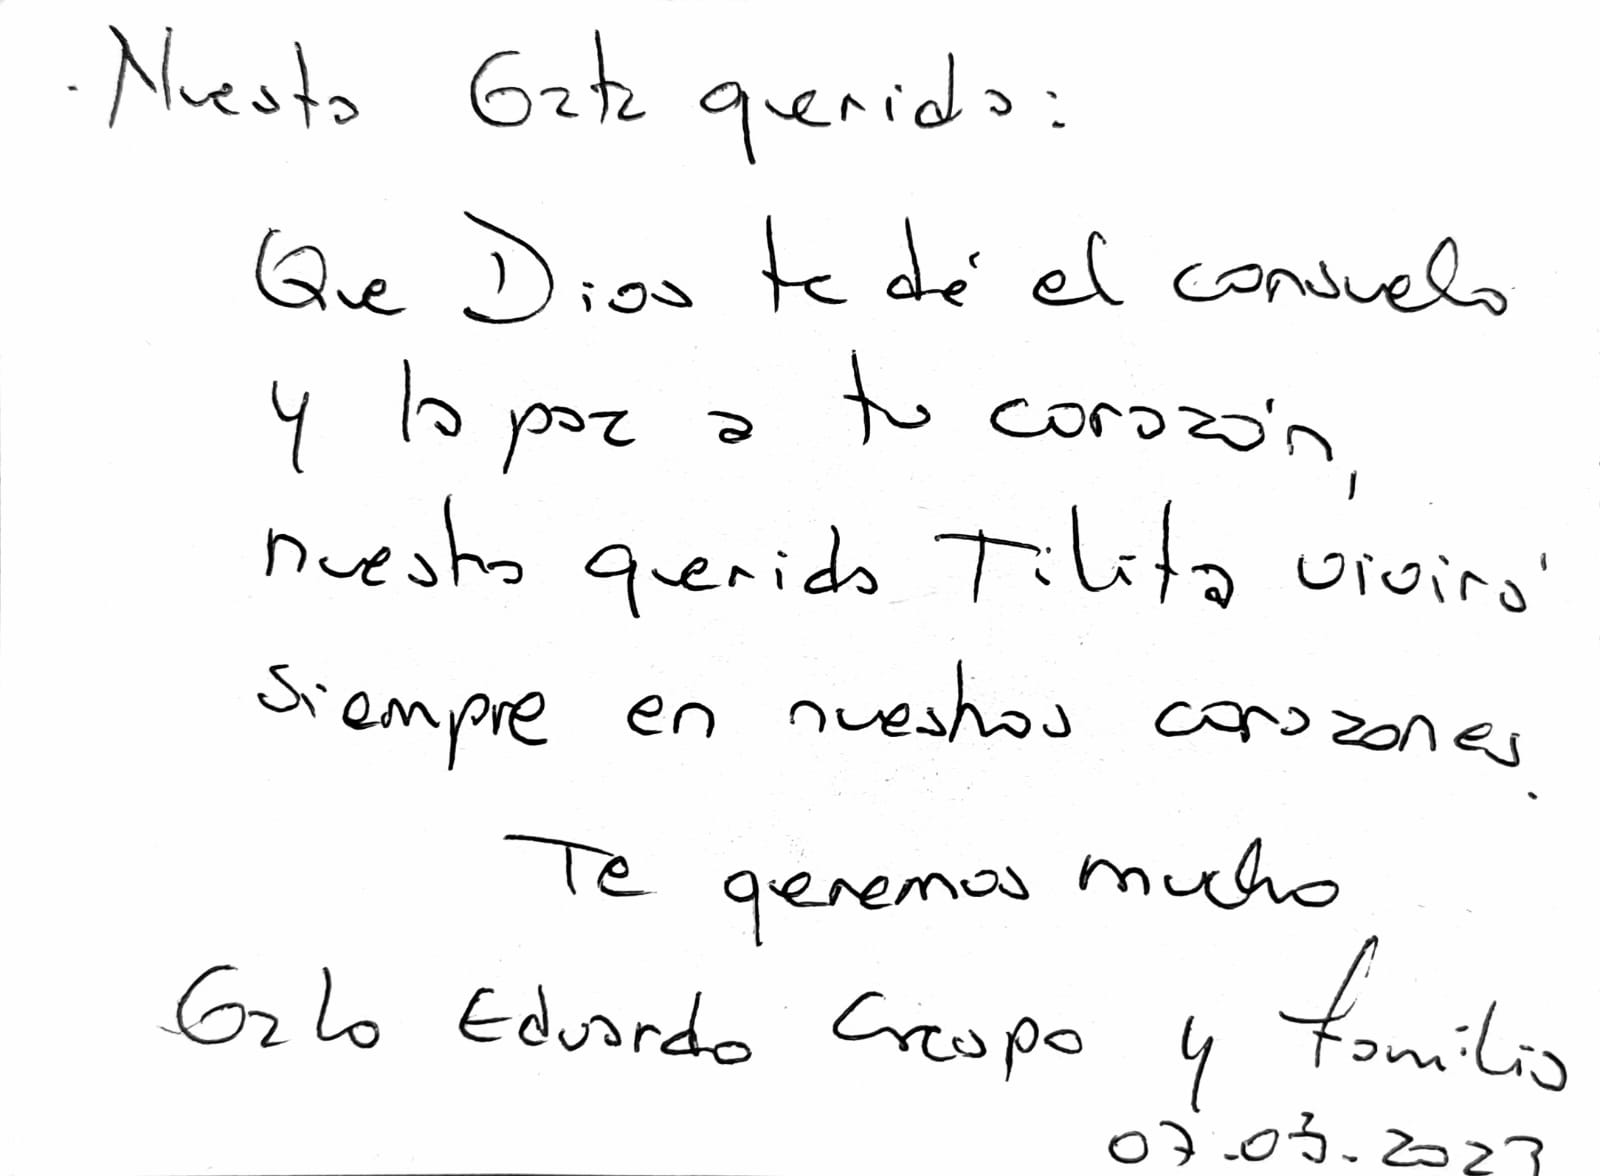 Nuestra Gata querida:
Que Dios te dé el consuelo
y la paz a tu corazón,
nuestro querido Tilita vivirá
siempre en nuestros corazones.
Te queremos mucho
Galo Eduardo Crespo y familia
07.03.2023